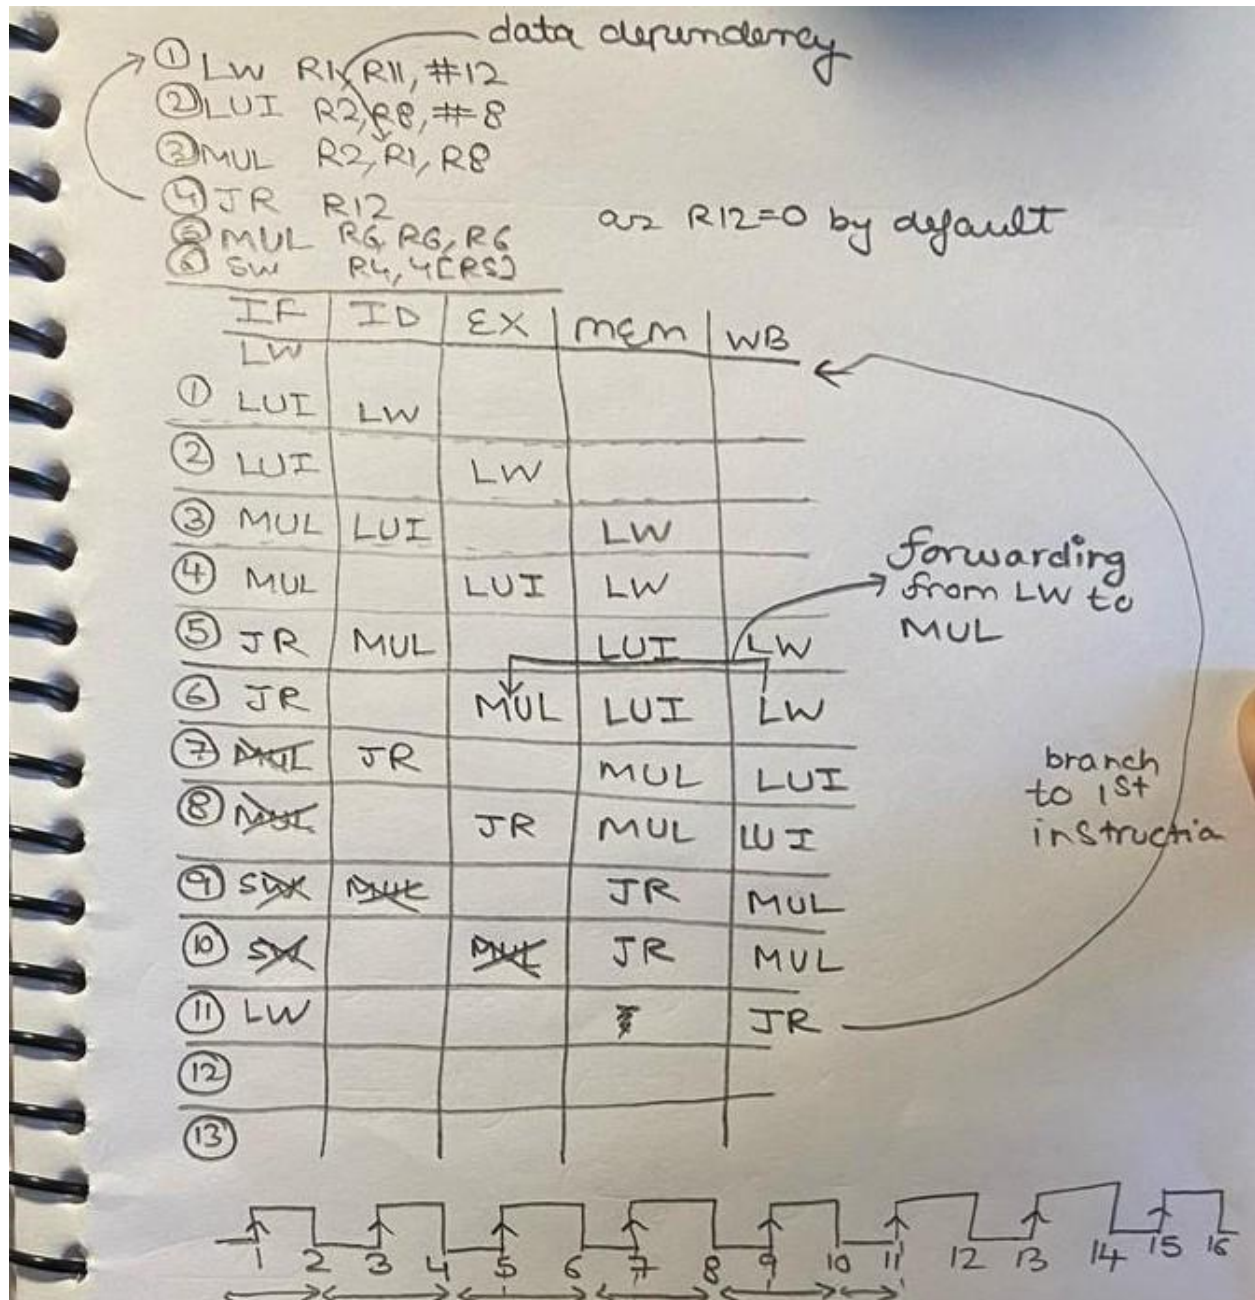 data dependency
① LW R1, R11, #12
② LUI R2, R8, #8
③ MUL R2, R1, R8
④ JR R12
as R12=0 by default
⑤ MUL R6, R6, R6
⑥ SW R4, 4[R5]
IF ID EX MEM WB
LW
① LUI LW
② LUI LW
③ MUL LUI LW
④ MUL LUI LW
⑤ JR MUL LUI LW
⑥ JR MUL LUI LW
⑦ MUL JR MUL LUI
⑧ MUL JR MUL LUI
⑨ SW MUL JR MUL
⑩ SW MUL JR MUL
⑪ LW JR
⑫
⑬
forwarding
from LW to
MUL
branch
to 1st
instructio
1 2 3 4 5 6 7 8 9 10 11 12 13 14 15 16